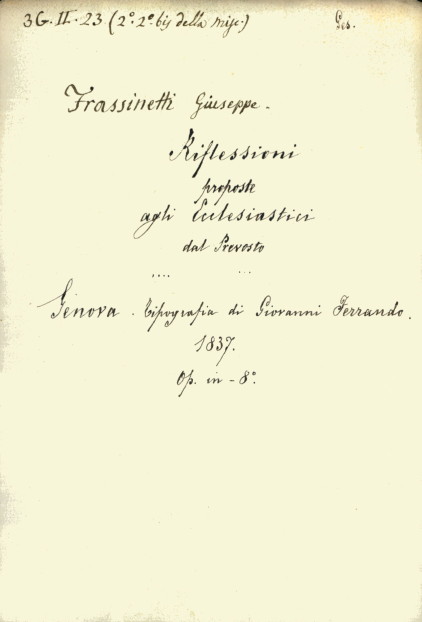 3G. II. 23. (2º. 2º. bis della misc.) Ges.
Frassinetti Giuseppe.
Riflessioni
proposte
agli Ecclesiastici
dal Prevosto
.... ...
Genova. Tipografia di Giovanni Ferrando.
1837.
Op. in-8º.